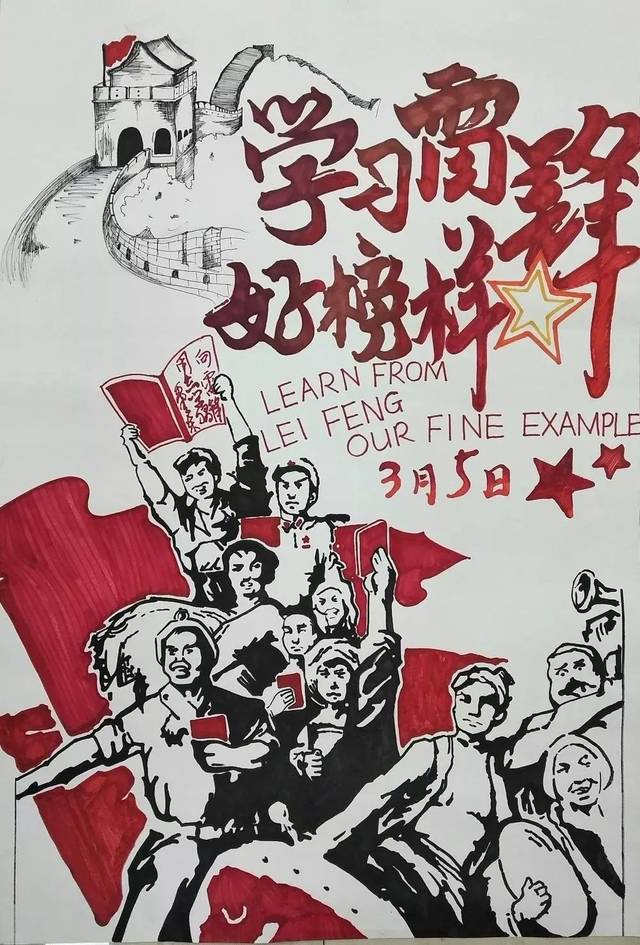 学习雷锋
好榜样
LEARN FROM
LEI FENG
OUR FINE EXAMPLE
3月5日